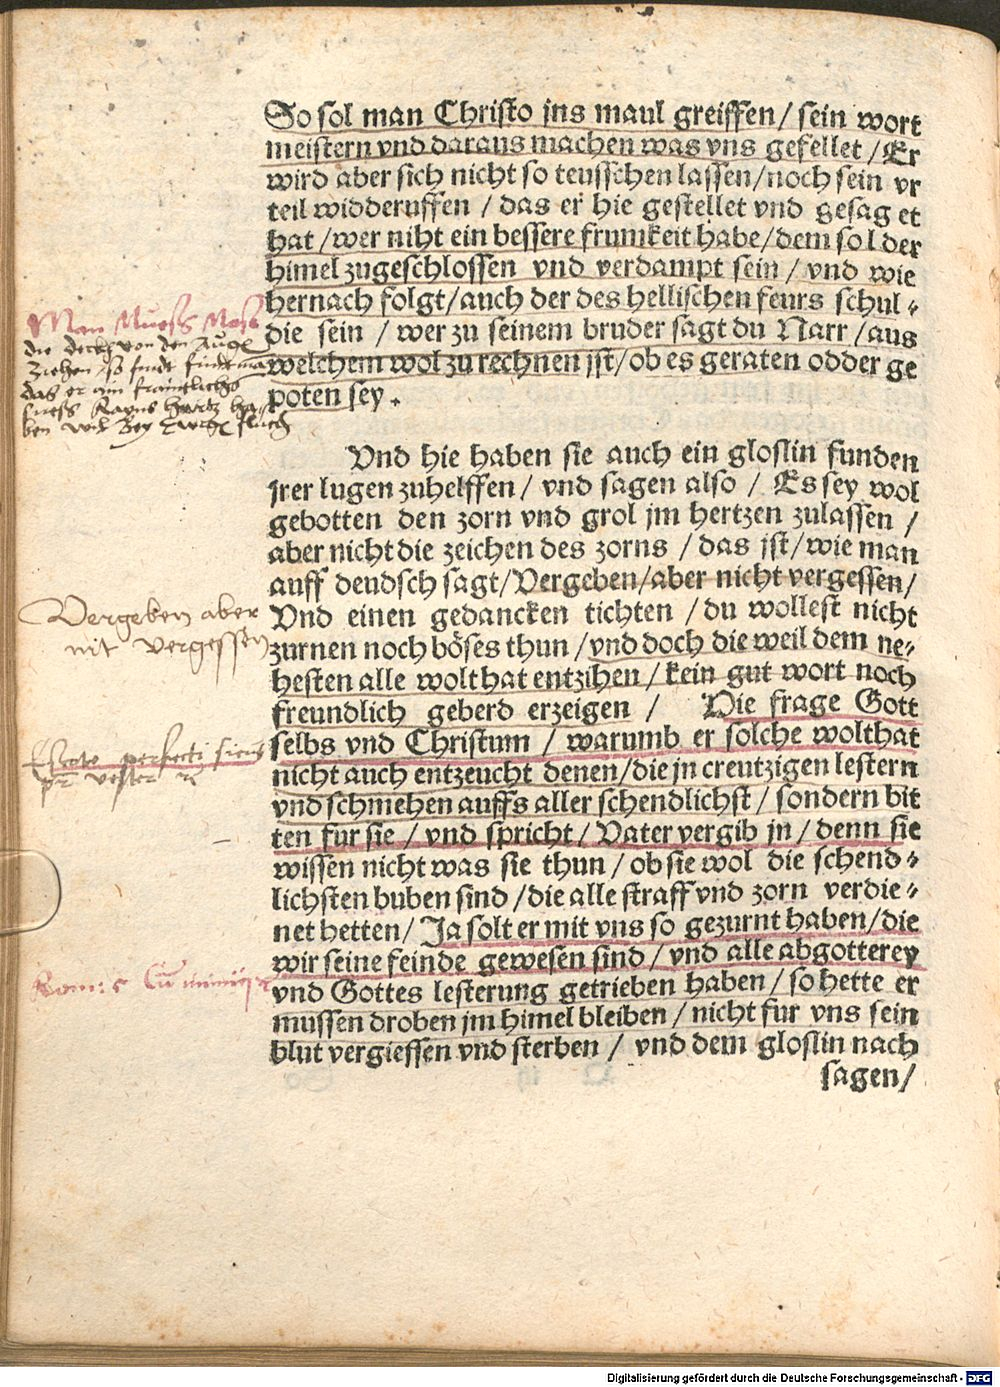 So sol man Christo jns maul greiffen / sein wort
meistern vnd daraus machen was vns gefellet / Er
wird aber sich nicht so teusschen lassen / noch sein vr
teil widderuffen / das er hie gestellet vnd gesag et
hat / wer niht ein bessere frumkeit habe / dem sol der
himel zugeschlossen vnd verdampt sein / vnd wie
hernach folgt / auch der des hellischen feurs schul⸗
die sein / wer zu seinem bruder sagt du Narr / aus
welchem wol zu rechnen jst / ob es geraten odder ge
poten sey .
Man Muess Mose
die deckh von den Auge
Ziehen so findt
das er ain
ben wil bey
Vnd hie haben sie auch ein gloslin funden
jrer lugen zuhelffen / vnd sagen also / Es sey wol
gebotten den zorn vnd grol jm hertzen zulassen /
aber nicht die zeichen des zorns / das jst / wie man
auff deudsch sagt / Vergeben / aber nicht vergessen /
Vnd einen gedancken tichten / du wollest nicht
zurnen noch böses thun / vnd doch die weil dem ne⸗
hesten alle wolthat entzihen / kein gut wort noch
freundlich geberd erzeigen / Die frage Gott
selbs vnd Christum / warumb er solche wolthat
nicht auch entzeucht denen / die jn creutzigen lestern
vnd schmehen auffs aller schendlichst / sondern bit
ten fur sie / vnd spricht / Vater vergib jn / denn sie
wissen nicht was sie thun / ob sie wol die schend⸗
lichsten buben sind / die alle straff vnd zorn verdie⸗
net hetten / Ja solt er mit vns so gezurnt haben / die
wir seine feinde gewesen sind / vnd alle abgotterey
vnd Gottes lesterung getrieben haben / so hette er
mussen droben jm himel bleiben / nicht fur vns sein
blut vergiessen vnd sterben / vnd dem gloslin nach
sagen /
Vergeben aber
nit vergessen
Estote perfecti sicut
pr vester
Rom: 5 Cu inimici
Digitalisierung gefördert durch die Deutsche Forschungsgemeinschaft - DFG